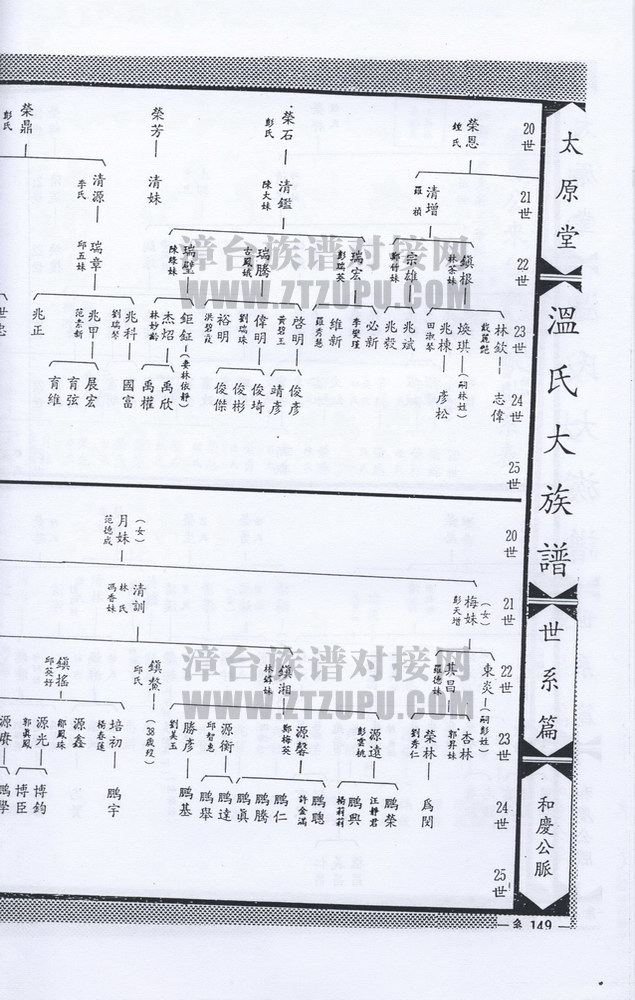 太原堂
溫氏大族譜
世系篇
和慶公脈
20世
21世
22世
23世
24世
25世
榮恩
鍾氏
榮石
彭氏
榮芳
榮鼎
彭氏
清增
羅禎
清鑑
陳大妹
清妹
清源
李氏
鎮根
林茶妹
宗雄
鄭竹妹
瑞宏
彭瑞英
瑞騰
古鳳娥
瑞璧
陳綠妹
瑞章
邱五妹
林欽
煥琪
(嗣林姓)
兆棟
田淑琴
兆斌
兆毅
必新
李樊瑾
維新
羅秀慧
啓明
黃碧玉
偉明
劉瑞珠
裕明
洪碧霞
鉅鉦
(妻林依靜)
杰炤
林妙齡
兆科
劉瑞琴
兆甲
范素新
兆正
世忠
志偉
彥松
俊彥
靖彥
俊琦
俊彬
俊傑
禹欣
禹權
國富
展宏
育弦
育維
20世
21世
22世
23世
24世
25世
月妹
(女)
范德成
梅妹
(女)
彭天增
清訓
林氏
馮香妹
東炎
(嗣彭姓)
其昌
羅德妹
鎮湘
林銘妹
鎮鰲
邱氏
(38歲歿)
鎮搖
邱茭妤
杏林
郭昇妹
榮林
劉秀仁
源遠
彭雲桃
源馨
鄭梅英
源衡
邱智惠
勝彥
劉美玉
培初
楊春蓮
源鑫
鄒鳳珠
源光
郭眞鳳
源賡
爲閔
鵬榮
汪靜君
鵬興
楊莉莉
鵬聰
許金滿
鵬仁
鵬騰
鵬眞
鵬達
鵬舉
鵬基
鵬宇
博鈞
博臣
鵬學
149
漳台族谱对接网
WWW.ZTZUPU.COM
漳台族谱对接网
WWW.ZTZUPU.COM